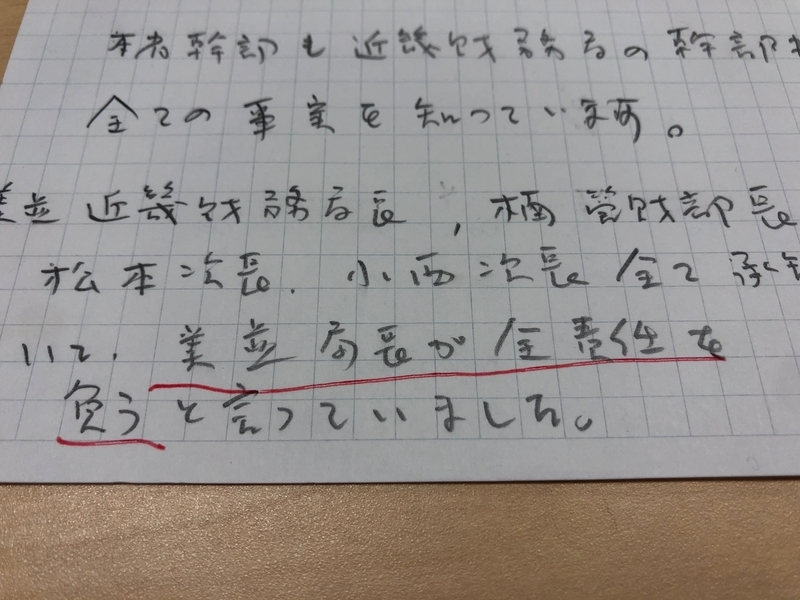 本省幹部も近畿財務局の幹部も
全ての事実を知っています。
美並近畿財務局長,楠管財部長
松本次長.小西次長全て承知
いて.美並局長が全責任を
負うと言っていました。